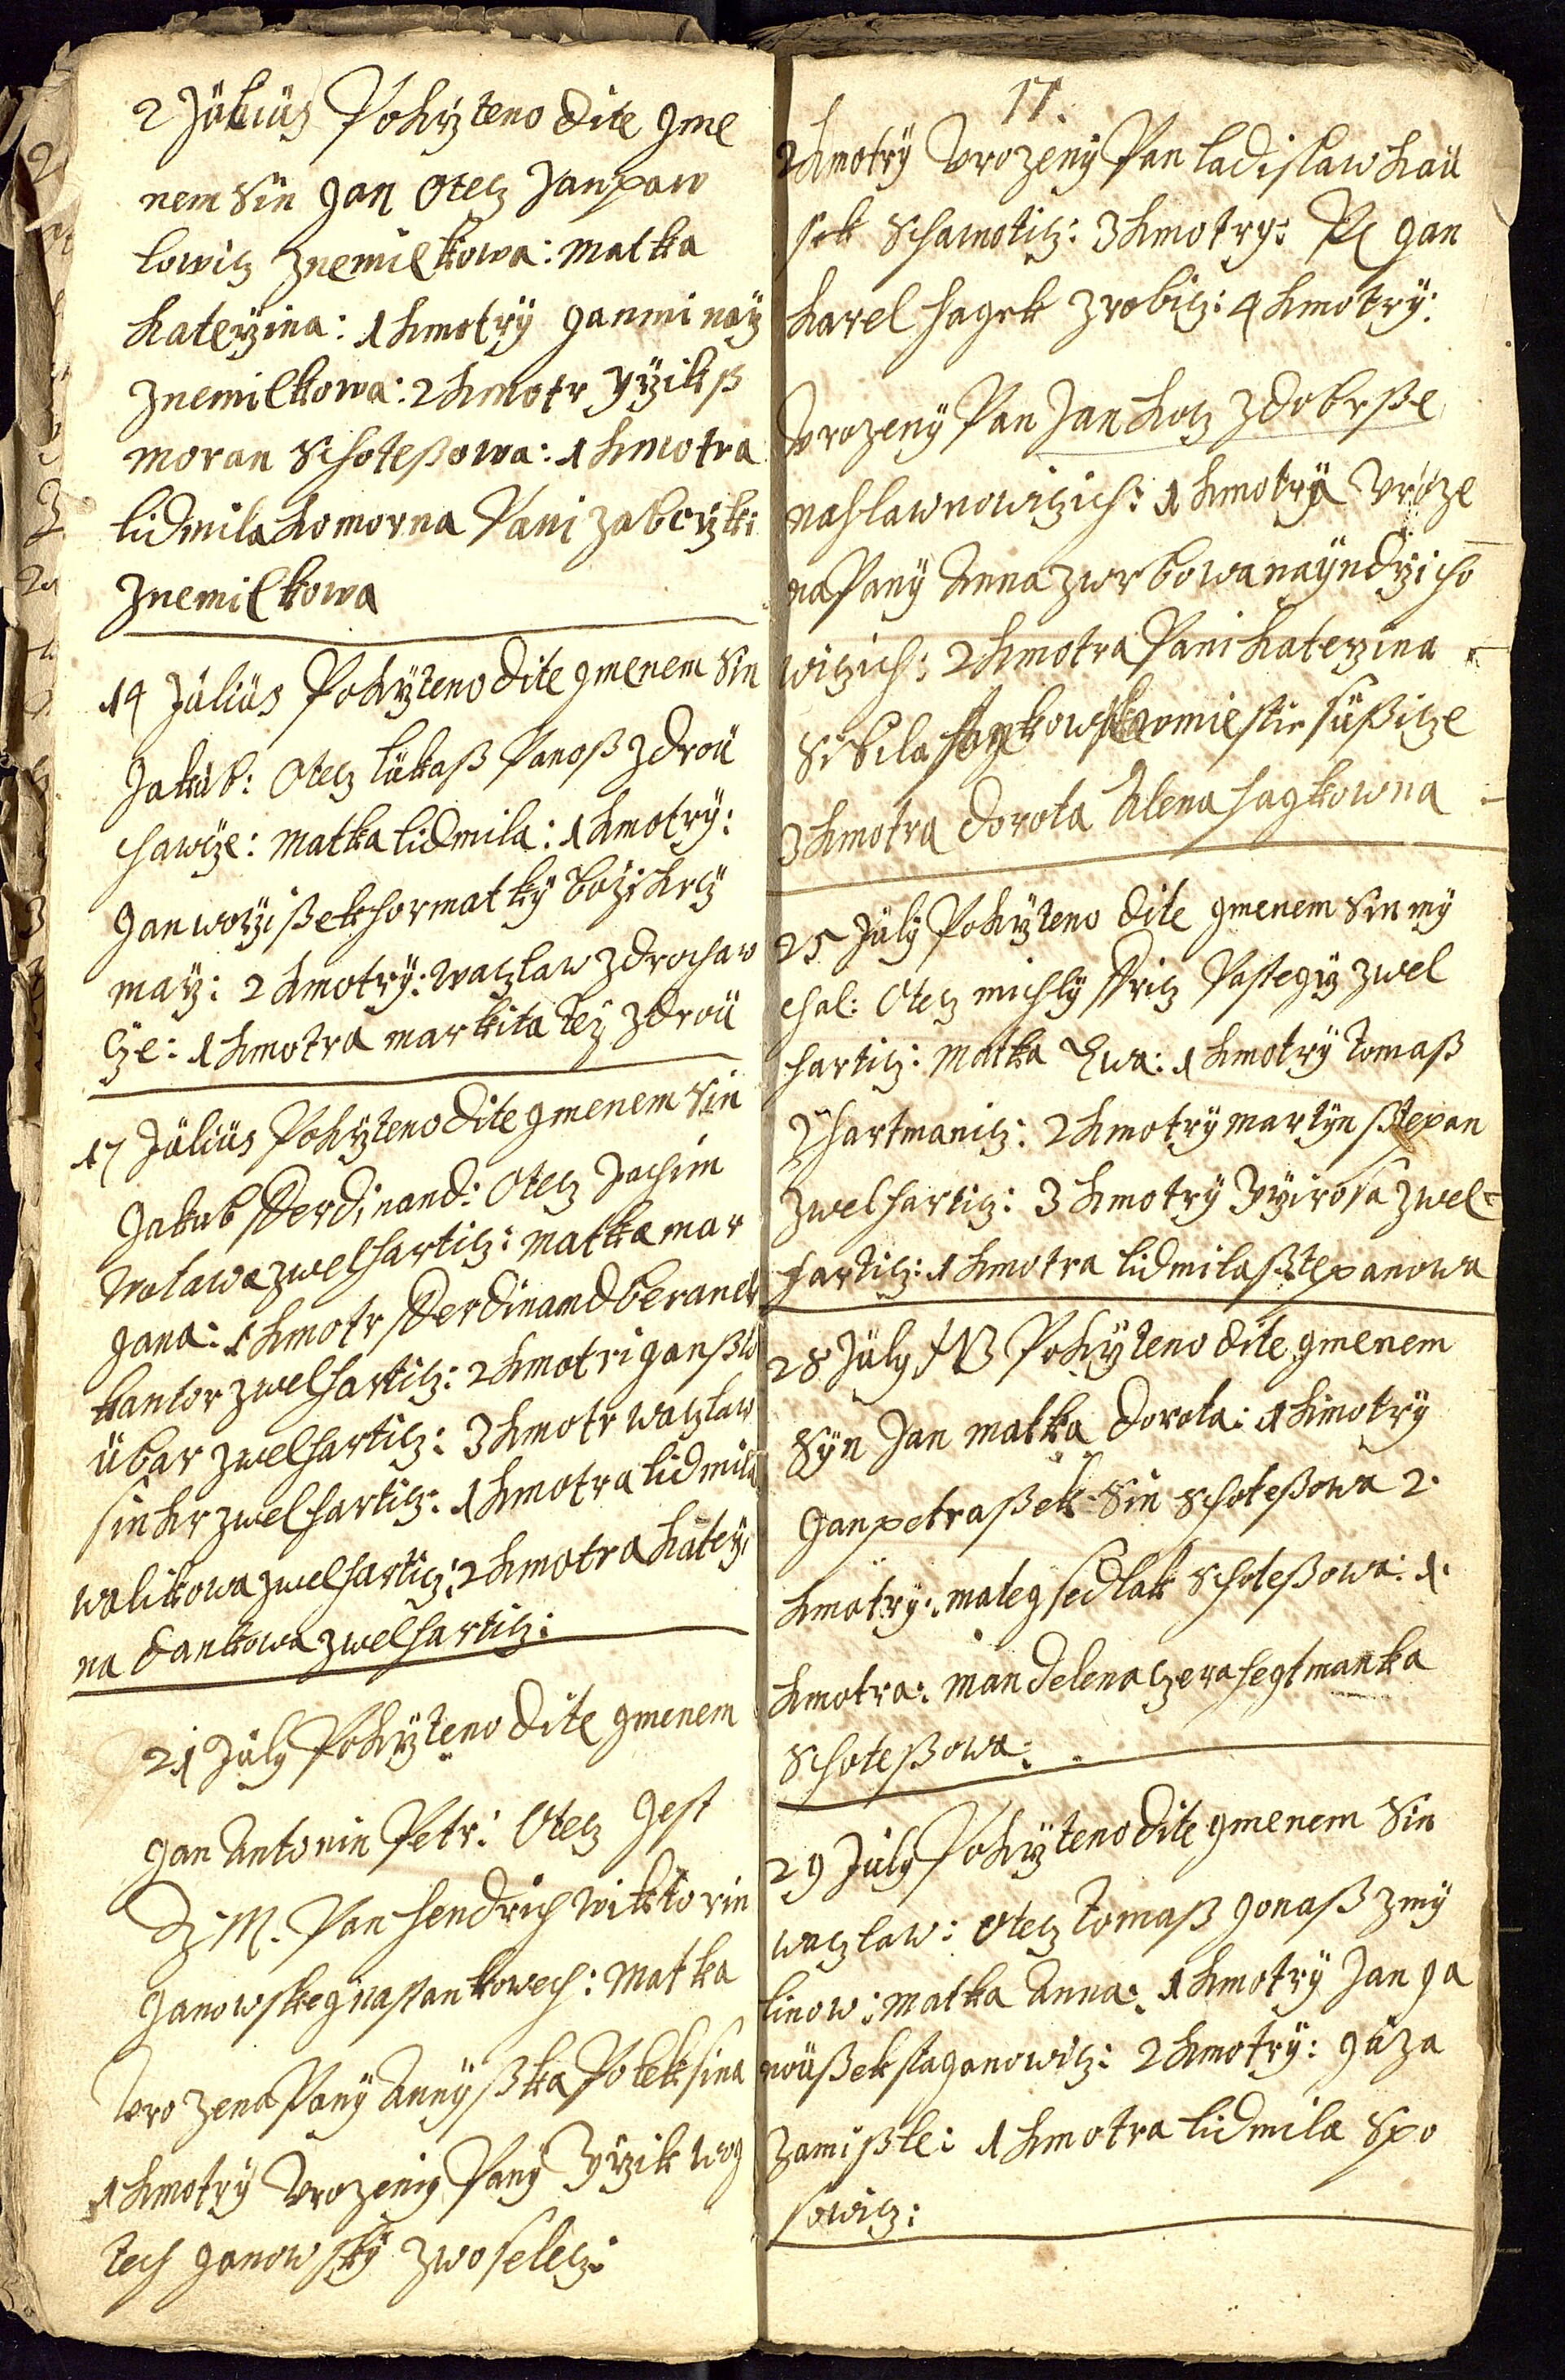 2 Július Pokrzteno dite gme
nem Sin Jan Otecz Jan paw
lowicz Znemilkowa: Matka
Katerzina: 1 kmotrÿ Jan minarz
Znemilkowa: 2 kmotr Jyrzik ß
moran Schoteßowa: 1 kmotra
lidmila komorna Pani zaborzki
Znemilkowa
14 Július Pokrzteno dite gmenem Sin
Jakub: Otecz lúkaß Panoß Zdrou
hawcze: Matka lidmila: 1 kmotrÿ:
Jan worzißek hor matkÿ bozi krcz
marz: 2 kmotrÿ: waczlaw Zdrohaw
cze: 1 kmotra markita tez Zdroú
17 Július Pokrzteno dite gmenem Sin
Jakub Ferdinand: Otecz Jachim
Wotawa zwelharticz: Matka mar
gana: 1 kmotr Ferdinand beranek
kantor zwelharticz: 2 kmotri gan ßw
úbar zwelharticz: 3 kmotr waczlaw
sinkr zwelharticz: 1 kmotra lidmila
walikowa zwelharticz: 2 kmotra katerzi
na dankowa zwelharticz:
21 Júly Pokrzteno dite gmenem
Jan Antonin Petr: Otecz gest
Pan Hendrich Wiktorin
Janowskeg na stankowech: Matka
Vrozena Panÿ Annÿßka
1 kmotrÿ Vrozenÿ Panÿ Jyrzik wog
tech Janowskÿ zwoselecz:
17.
2 kmotrÿ Vrozenÿ Pan ladislaw kaú
sek Schamoticz: 3 kmotry: Jan
karel hagek zrobicz: 4 kmotrÿ:
Vrozenÿ Pan Jan kocz zdobrße
nahlawnowiczich: 1 kmotra Vroze
na Panÿ Anna zwrbowa nayndrzicho
wiczich: 2 kmotra Pani katerzina
Sibila miestie súßicze
3 kmotra dorota Alena hagkowna
25 Júly Pokrzteno dite gmenem Sin mÿ
chal: Otecz michlÿ Fricz Pastegrz zwel
harticz: Matka Ewa: 1 kmotrÿ tomaß
Zhartmanicz: 2 kmotrÿ martÿn ßtepan
zwelharticz: 3 kmotrÿ Jyrirosa zwel-
harticz: 1 kmotra lidmila ßtepanowa
28 Júly NB Pokrzteno dite gmenem
Sÿn Jan matka dorota: 1 kmotrÿ
Jan petraßek Sin Schoteßowa 2.
kmotrÿ: mateg sedlak Schoteßowa: 1.
kmotra: mandelena czera hegtmanka
Schoteßowa:
29 Júly Pokrzteno dite gmenem Sin
waczlaw: Otecz tomaß Jonaß zmÿ
linow: Matka Anna: 1 kmotrÿ Jan Ja
noúßek staganowicz: 2 kmotrÿ: gúza
zamißle: 1 kmotra lidmila Spo
sowicz: